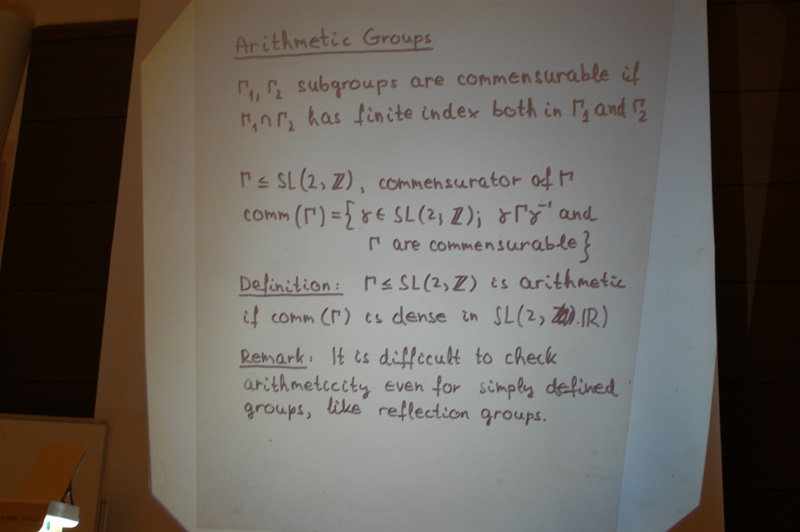 Arithmetic Groups
Γ₁, Γ₂ subgroups are commensurable if
Γ₁ ∩ Γ₂ has finite index both in Γ₁ and Γ₂
Γ ≤ SL(2, ℤ), commensurator of Γ
comm(Γ) = { γ ∈ SL(2, ℤ); γΓγ⁻¹ and
Γ are commensurable }
Definition: Γ ≤ SL(2, ℤ) is arithmetic
if comm(Γ) is dense in SL(2, ℝ)
Remark: It is difficult to check
arithmeticcity even for simply defined
groups, like reflection groups.